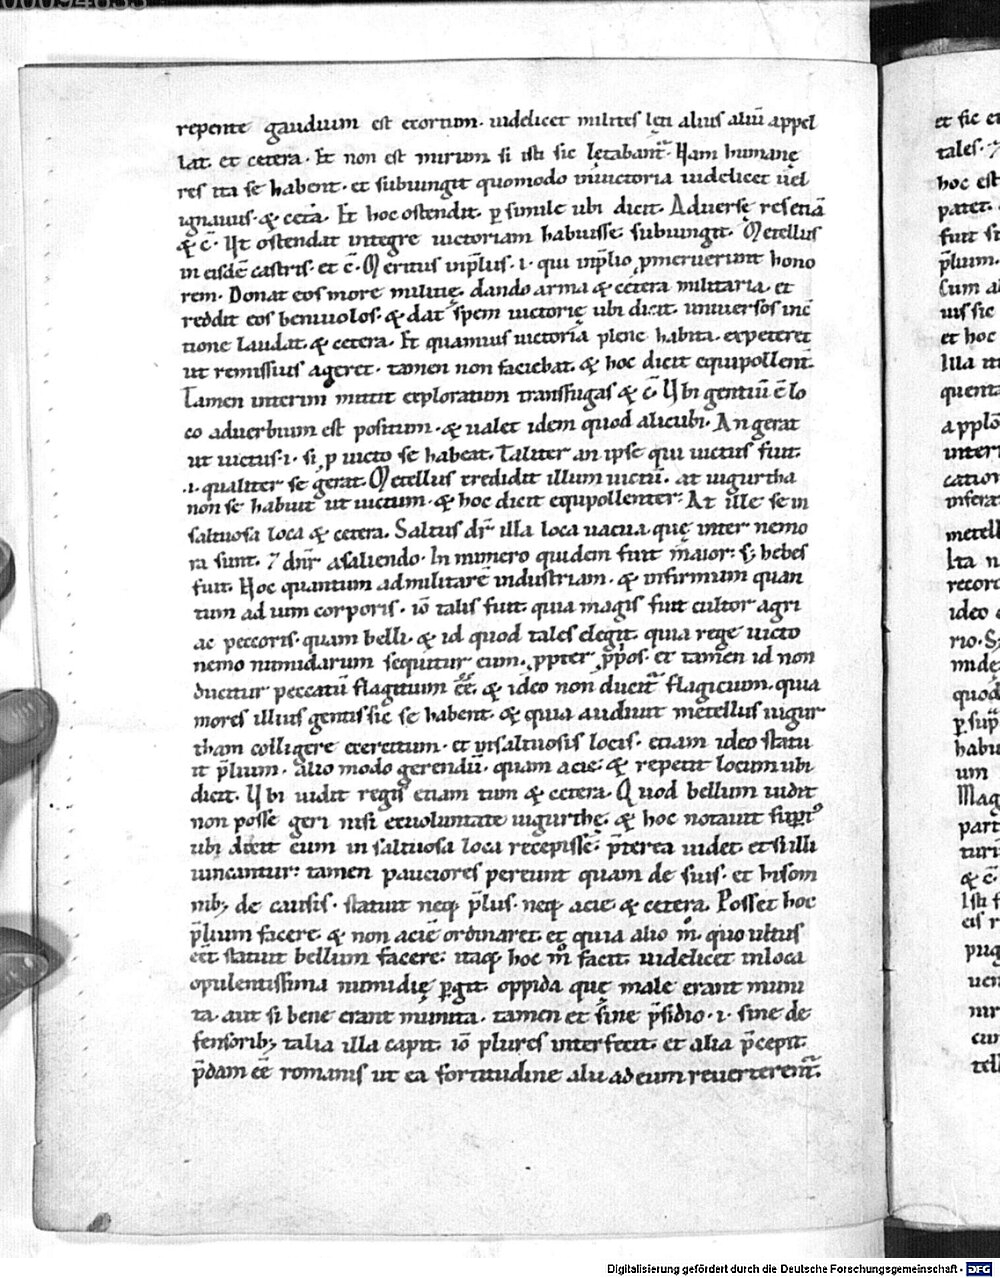 00094833
repente gaudium est exortum. uidelicet milites lęti alius aliū appel
lat. et cetera. Et non est mirum si isti sic lętabant᷑. Nam humanę
res ita se habent. et subiungit quomodo in uictoria uidelicet uel
ignauus. & cetā. Et hoc ostendit. ꝑ simile ubi dicit. Aduersę res etiā
& c̄. Ut ostendat integre uictoriam habuisse. subiungit. Metellus
in eisdē castris. et c̄. Meritus in p̄lius. i. qui in p̄lio ꝓmeruerunt hono
rem. Donat eos more militię. dando arma & cetera militaria. et
reddit eos beniuolos. & dat spem uictorię ubi dicit. uniuersos in c̄
tione laudat. & cetera. Et quamuis uictoria plene habita. expeteret
ut remissius ageret. tamen non faciebat. & hoc dicit equipollent̄.
Tamen interim mittit exploratum transfugas & c̄. Ubi gentiū ē lo
co aduerbium est positum. & ualet idem quod alicubi. An gerat
ut uictus. i. si ꝓ uicto se habeat. Taliter an ipse qui uictus fuit.
.i. qualiter se gerat. Metellus credidit illum uictū. at iugurtha
non se habuit ut uictum. & hoc dicit equipollenter. At ille se in
saltuosa loca & cetera. Saltus dr̄ illa loca uacua. quę inter nemo
ra sunt. ⁊ dn̄r a saliendo. In numero quidem fuit maior. sꝫ hebes
fuit. Hoc quantum ad militarē industriam. & infirmum quan
tum ad uim corporis. iō talis fuit. quia magis fuit cultor agri
ac peccoris. quam belli. & id quod tales elegit. quia rege uicto
nemo numidarum sequitur eum. ꝓpter ꝓp̄os. et tamen id non
ducitur peccatū flagitium eē. & ideo non ducit᷑ flagicium. quia
mores illius gentis sic se habent. & quia audiuit metellus iugur
tham colligere exercitum. et in saltuosis locis. etiam ideo statu
it p̄lium. alio modo gerendū. quam acie. & repetit locum ubi
dicit. Ubi uidit regis etiam tum & cetera. Quod bellum uidit
non posse geri nisi ex uoluntate iugurthę. & hoc notauit supi᷒
ubi dixit eum in saltuosa loca recepisse. p̄terea uidet et si illi
uincantur. tamen pauciores pereunt quam de suis. et his om
nibꝫ de causis. statuit neqꝫ p̄lus. neqꝫ acie & cetera. Posset hoc
p̄lium facere. & non aciē ordinaret. et quia alio m̊. quo ultus
eēt statuit bellum facere. itaqꝫ hoc m̊ facit. uidelicet in loca
opulentissima numidię ꝑgit. oppida quę male erant muni
ta. aut si bene erant munita. tamen et sine p̄sidio. i. sine de
fensoribꝫ talia illa capit. iō plures interfecit. et alia p̄cepit.
p̄dam eē romanis ut ea fortitudine alii ad eum reuerterent᷑.
et sic
tales.
hoc est
patet.
p̄lium.
et hoc
Illa
metell
ideo
quod
Digitalisierung gefördert durch die Deutsche Forschungsgemeinschaft - DFG